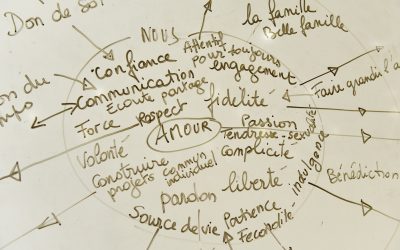 Don de so
la famille
Belle famille
NOUS
Attentif
Confiance
pour toujours
engagement
Communication
Ecoute partage
Faire grandir l'a
on du
Force
Respect
fidélité
AMOUR
Passion
Tendresse - sexualité
Complicité
Volonté
Construire
projets commun
individuel
indulgence
Bénédiction
pardon
liberté
Source de vie
Patience
Fecondité